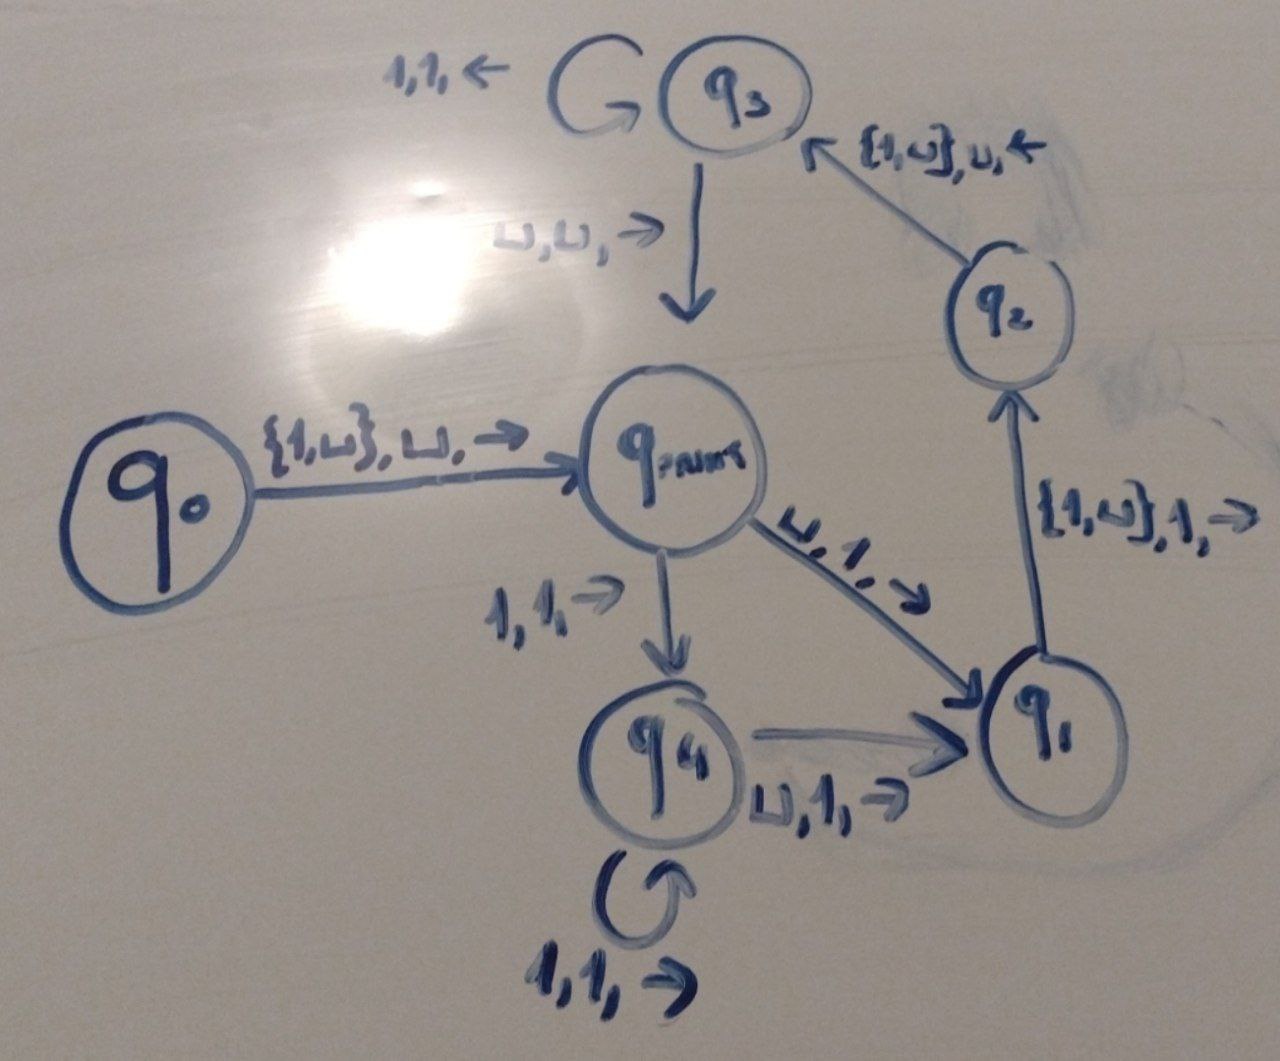 1,1,←
q3
{1,⊔},⊔,←
⊔,⊔,→
q2
q0
{1,⊔},⊔,→
q
⊔,1,→
{1,⊔},1,→
1,1,→
q4
q1
⊔,1,→
1,1,→